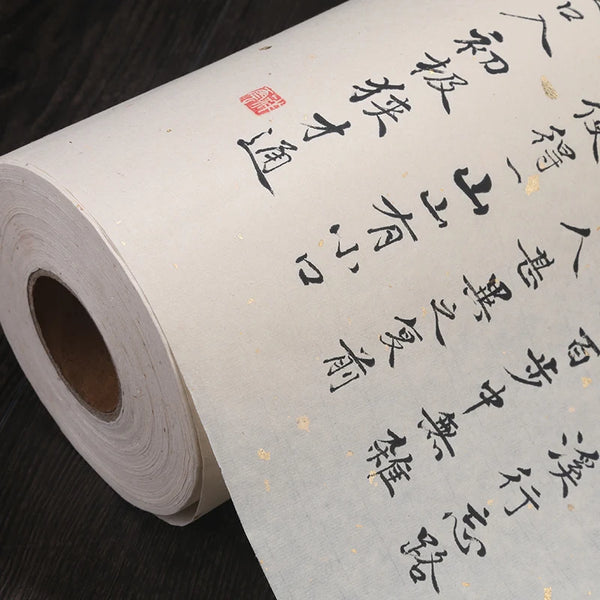 溪行忘路
百步中無雜
人甚異之復前
便得一山山有小口
口入初極狹才通